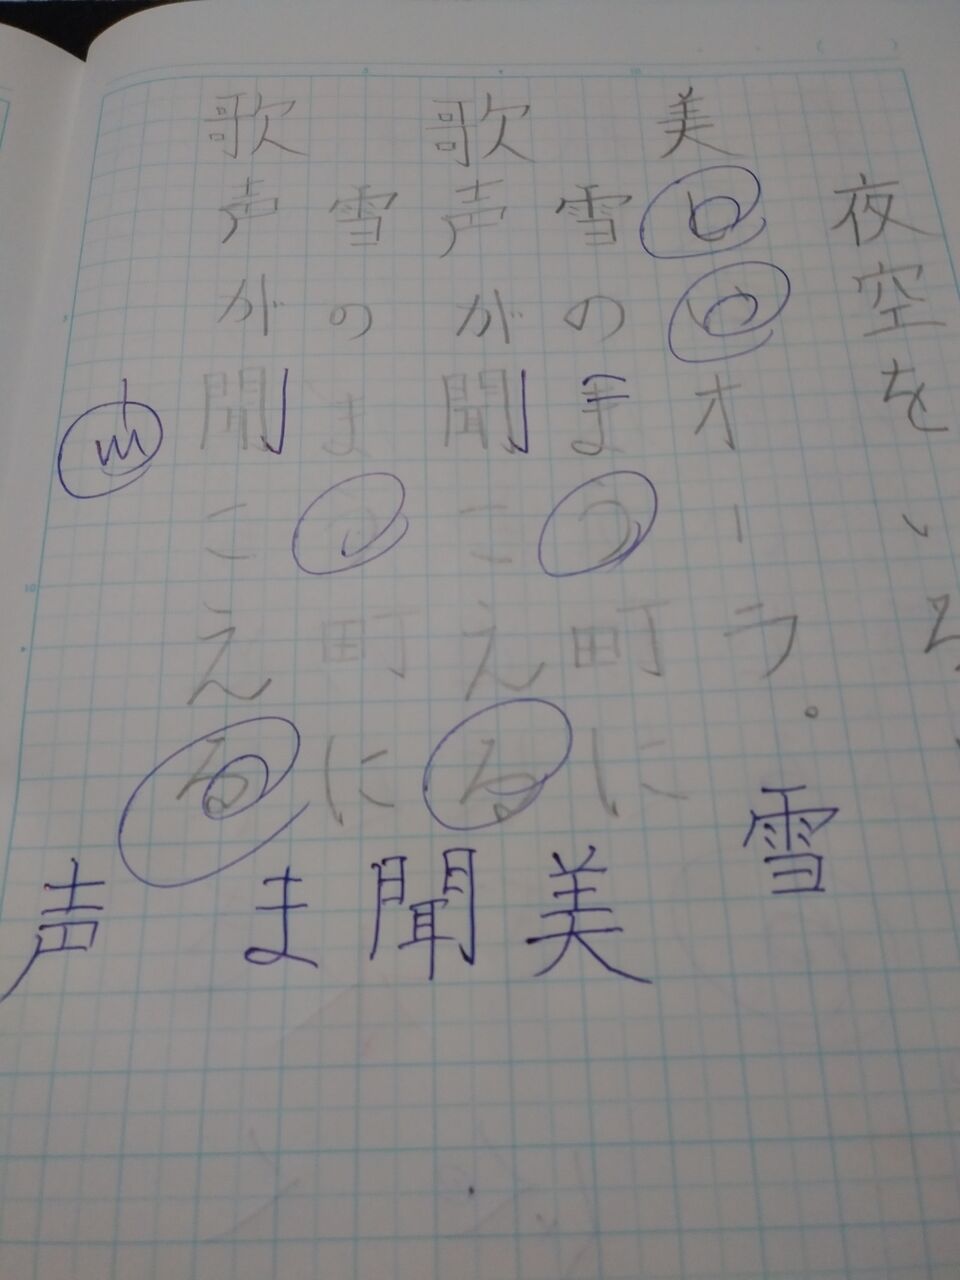 夜空をいろ
美しいオーラ。
雪のまつ町に
歌声が聞こえる
雪のまつ町に
歌声が聞こえる
雪
美
聞
ま
声